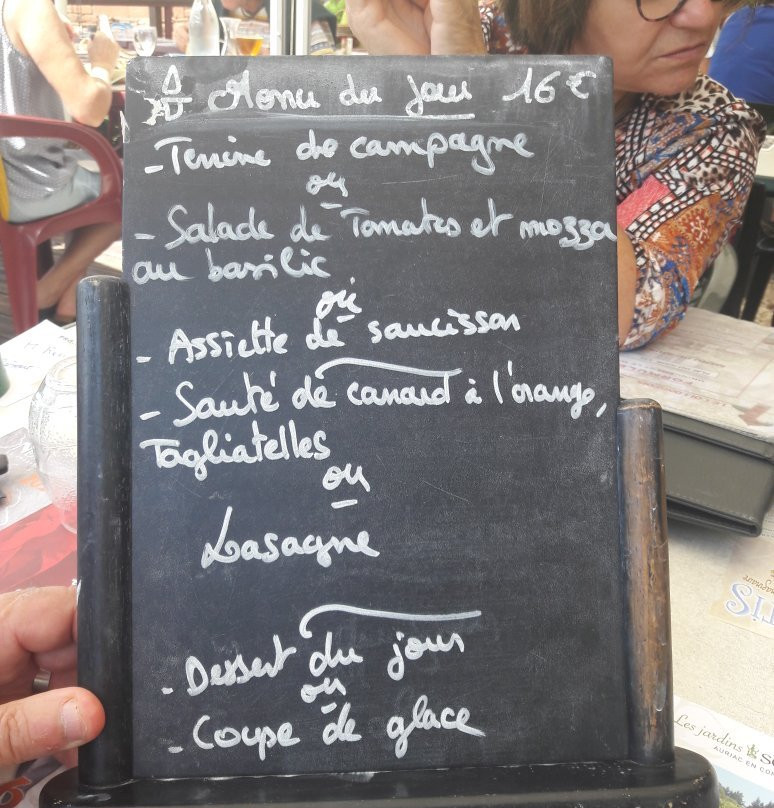 Menu du jour 16€
- Terrine de campagne
ou
- Salade de Tomates et mozza
au basilic
ou
- Assiette de saucisson
- Sauté de canard à l'orange,
Tagliatelles
ou
Lasagne
- Dessert du jour
ou
- Coupe de glace
Les jardins
AURIAC EN
RIS